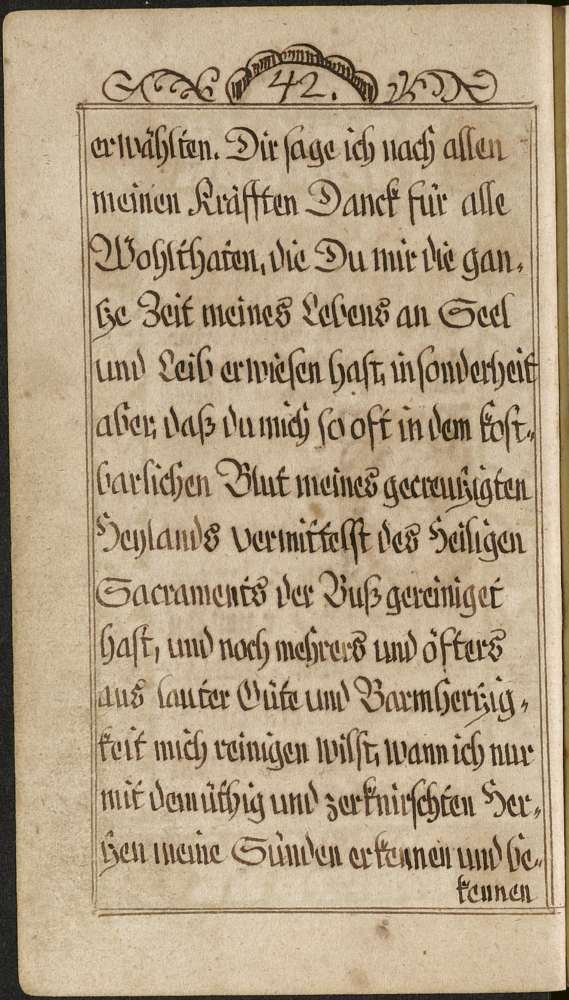 42.
erwählten. Dir sage ich nach allen
meinen Kräfften Danck für alle
Wohlthaten, die Du mir die gan-
tze Zeit meines Lebens an Seel
und Leib erwiesen hast, insonderheit
aber, daß du mich so oft in dem kost-
barlichen Blut meines gecreutzigten
Heylands vermittelst des Heiligen
Sacraments der Buß gereiniget
hast, und noch mehrers und öfters
aus lauter Güte und Barmhertzig-
keit mich reinigen willst, wann ich nur
mit demüthig und zerknirschten Her-
tzen meine Sünden erkennen und be-
kennen